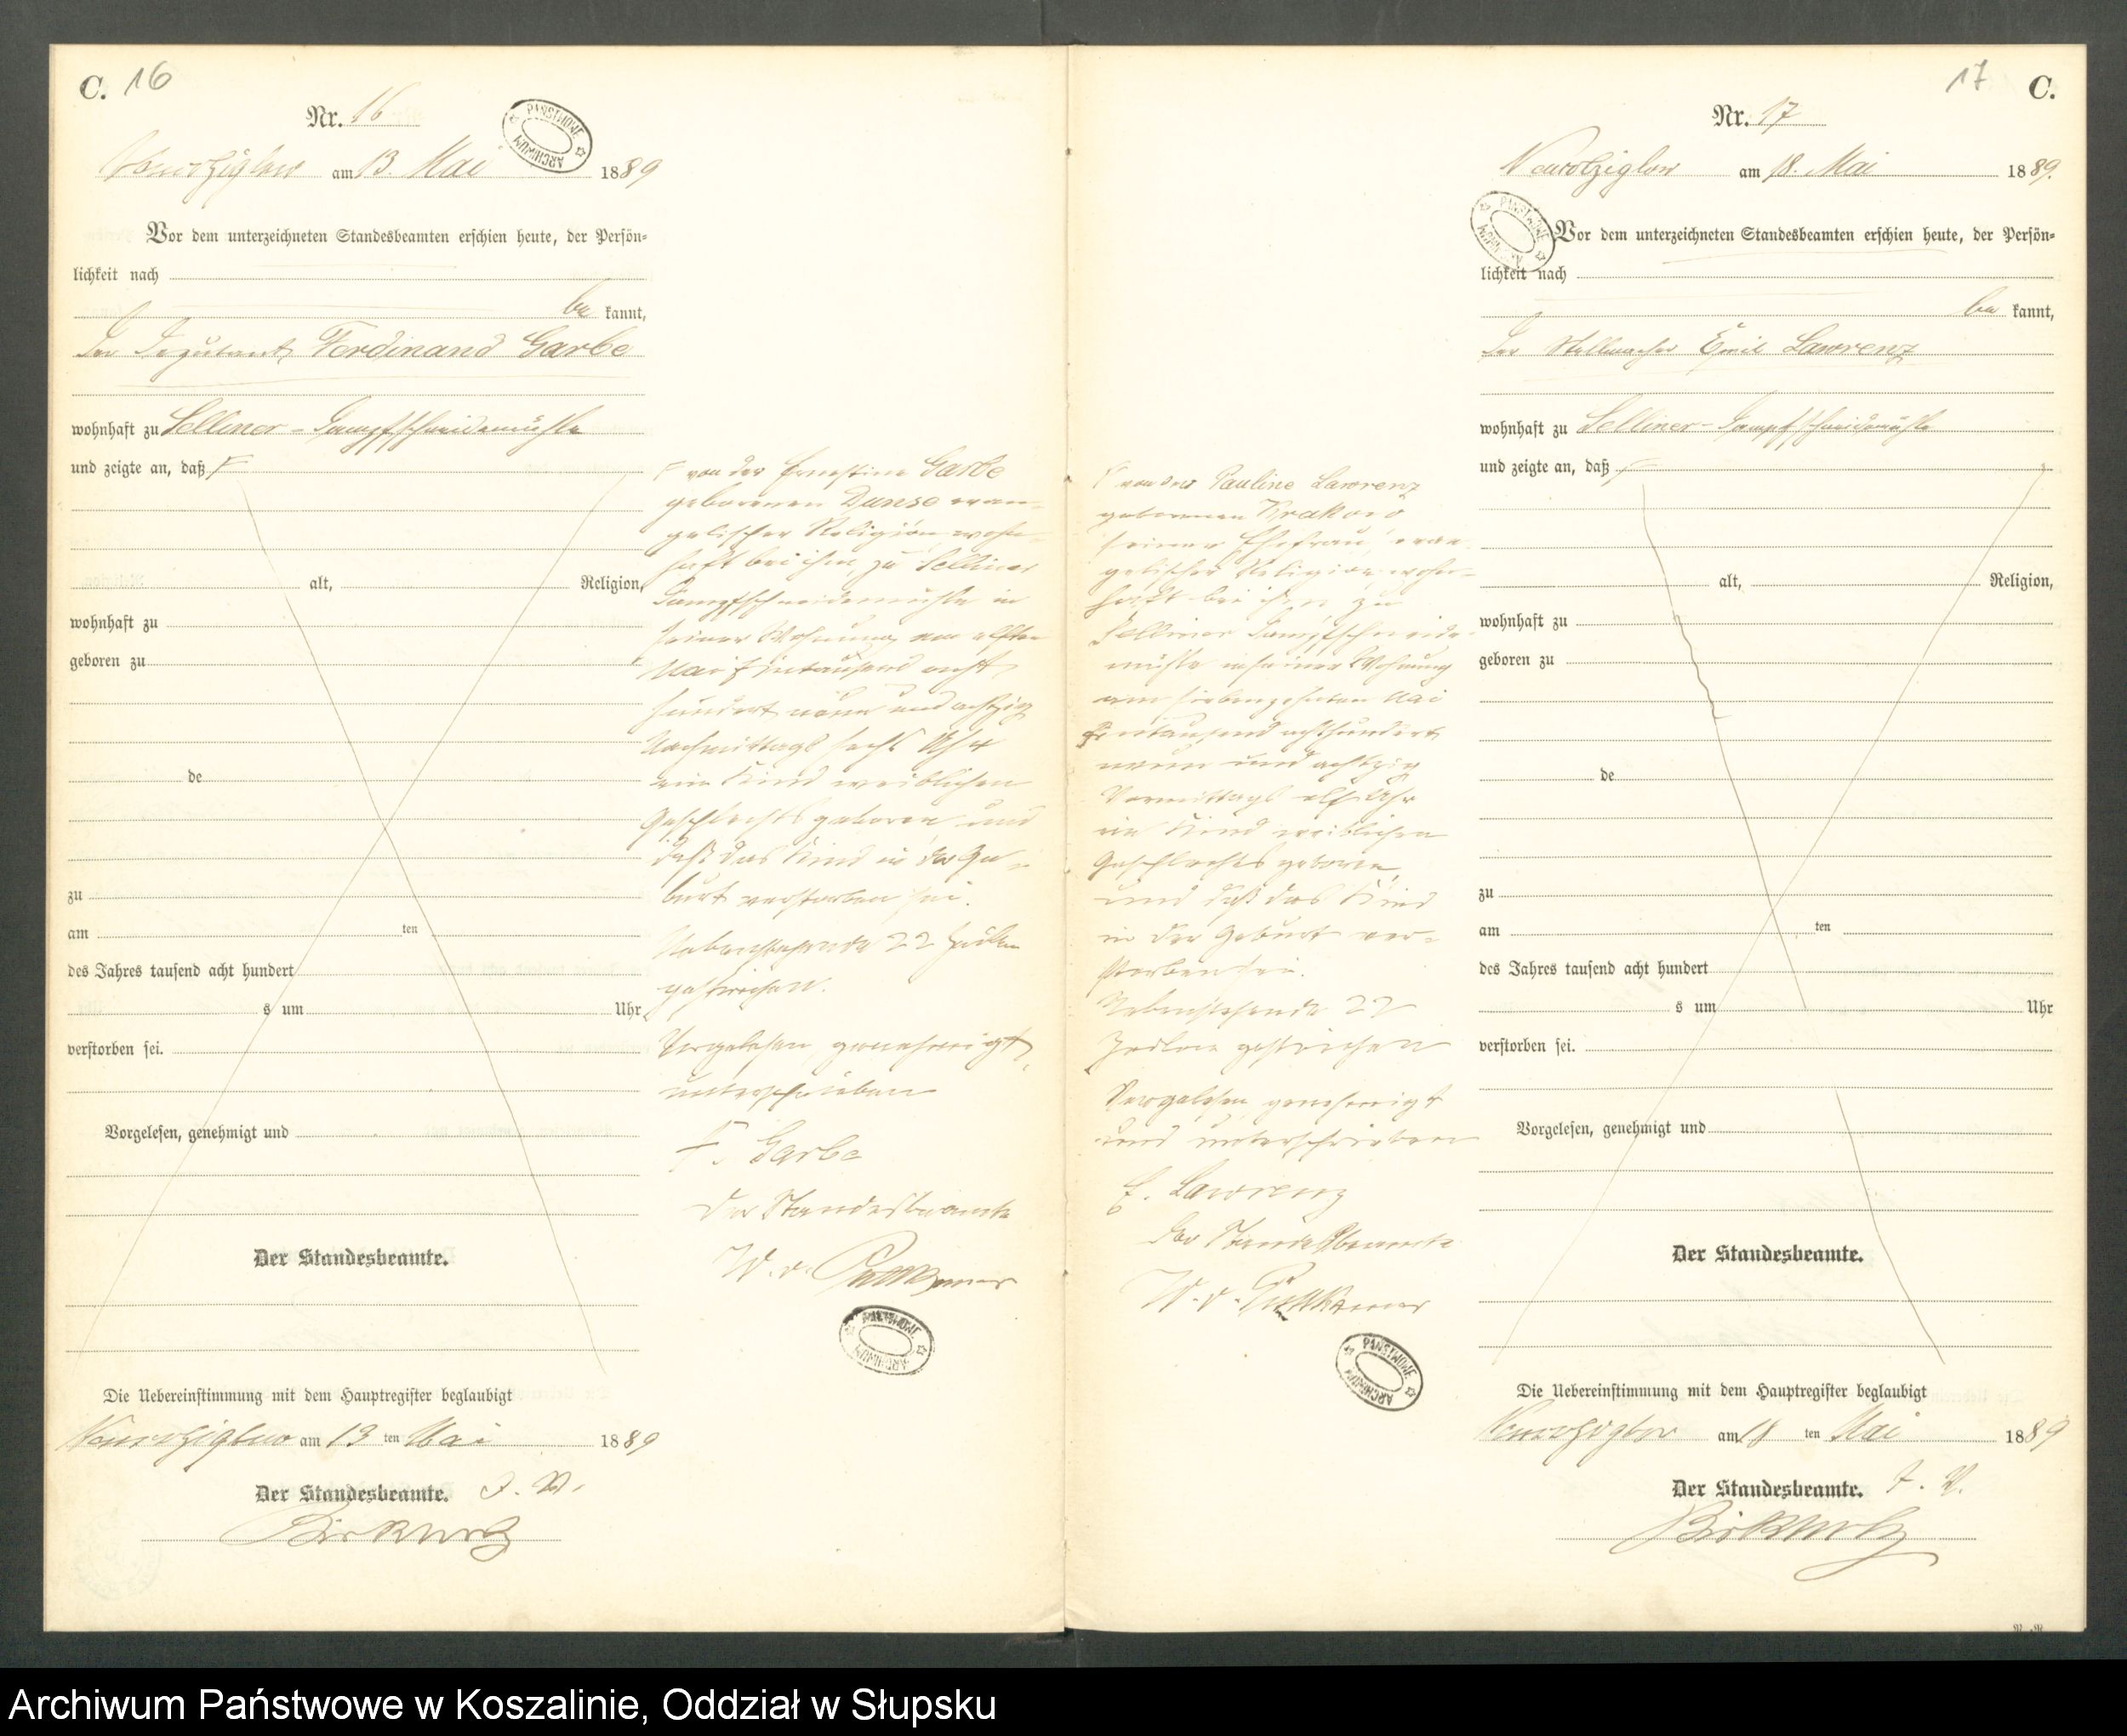 C. 16
Nr. 16
PANSTWOWE ARCHIWUM
am 13. Mai 1889
Vor dem unterzeichneten Standesbeamten erschien heute, der Persön-
lichkeit nach
be kannt,
Der Deputant Ferdinand Garbe
wohnhaft zu Selliner-Dampfschneidemühle
und zeigte an, daß
alt, Religion,
wohnhaft zu
geboren zu
de
zu
am ten
des Jahres tausend acht hundert
s um Uhr
verstorben sei.
Vorgelesen, genehmigt und
Der Standesbeamte.
von der Ernestine Garbe
geborenen Dunse evan-
gelischer Religion wohn-
haft bei ihm zu Selliner
Dampfschneidemühle in
seiner Wohnung am elften
Mai eintausend acht
hundert neun und achtzig
Nachmittags sechs Uhr
ein Kind weiblichen
Geschlechts geboren und
daß das Kind in der Ge-
burt verstorben sei.
Nebenstehende 22 Zeilen
gestrichen.
Vorgelesen genehmigt
unterschrieben
F. Garbe
Der Standesbeamte
W. v. Puttkamer
PANSTWOWE ARCHIWUM
Die Uebereinstimmung mit dem Hauptregister beglaubigt
am 13 ten Mai 1889
Der Standesbeamte.
17 C.
Nr. 17
am 18. Mai 1889.
PANSTWOWE ARCHIWUM
Vor dem unterzeichneten Standesbeamten erschien heute, der Persön-
lichkeit nach
be kannt,
Der Stellmacher Emil Lawrenz
wohnhaft zu Selliner-Dampfschneidemühle
und zeigte an, daß
alt, Religion,
wohnhaft zu
geboren zu
de
zu
am ten
des Jahres tausend acht hundert
s um Uhr
verstorben sei.
Vorgelesen, genehmigt und
Der Standesbeamte.
von der Pauline Lawrenz
geborenen Krakow
seiner Ehefrau, evan-
gelischer Religion wohn-
haft bei ihm zu
Selliner Dampfschneide-
mühle in seiner Wohnung
am siebenzehnten Mai
eintausend achthundert
neun und achtzig
Vormittags elf Uhr
ein Kind weiblichen
Geschlechts geboren,
und daß das Kind
in der Geburt ver-
storben sei.
Nebenstehende 22
Zeilen gestrichen
Vorgelesen genehmigt
und unterschrieben
E. Lawrenz
Der Standesbeamte
W. v. Puttkamer
PANSTWOWE ARCHIWUM
Die Uebereinstimmung mit dem Hauptregister beglaubigt
am 18 ten Mai 1889
Der Standesbeamte.
Archiwum Państwowe w Koszalinie, Oddział w Słupsku